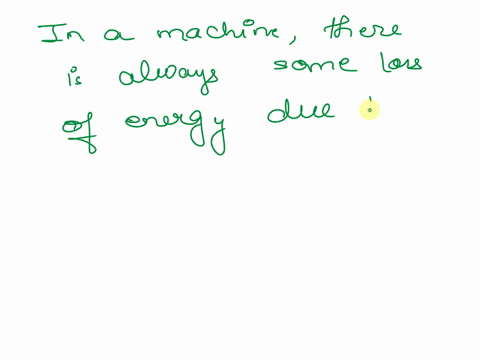 In a machine, there
is always some loss
of energy due